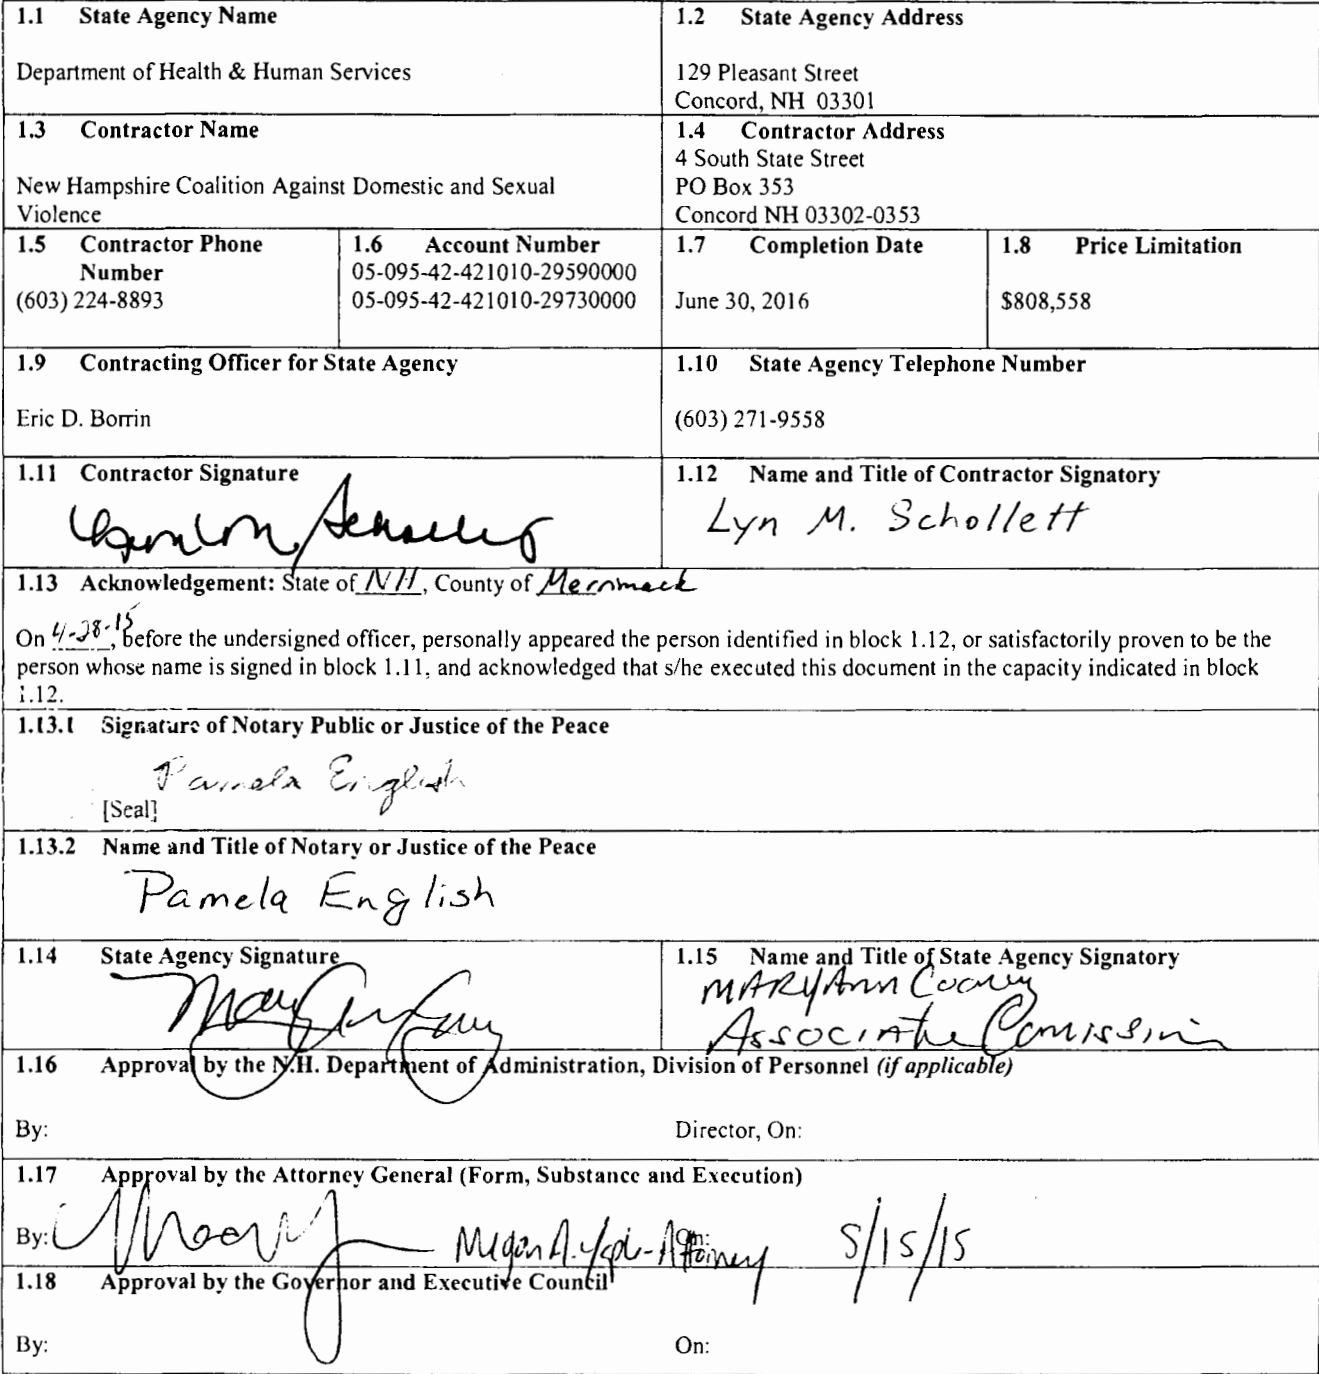 1.1 State Agency Name
Department of Health & Human Services
1.2 State Agency Address
129 Pleasant Street
Concord, NH 03301
1.3 Contractor Name
New Hampshire Coalition Against Domestic and Sexual
Violence
1.4 Contractor Address
4 South State Street
PO Box 353
Concord NH 03302-0353
1.5 Contractor Phone
Number
(603) 224-8893
1.6 Account Number
05-095-42-421010-29590000
05-095-42-421010-29730000
1.7 Completion Date
June 30, 2016
1.8 Price Limitation
$808,558
1.9 Contracting Officer for State Agency
Eric D. Borrin
1.10 State Agency Telephone Number
(603) 271-9558
1.11 Contractor Signature
1.12 Name and Title of Contractor Signatory
Lyn M. Schollett
1.13 Acknowledgement: State of NH, County of Merrimack
On 4-28-15, before the undersigned officer, personally appeared the person identified in block 1.12, or satisfactorily proven to be the
person whose name is signed in block 1.11, and acknowledged that s/he executed this document in the capacity indicated in block
1.12.
1.13.1 Signature of Notary Public or Justice of the Peace
Pamela English
[Seal]
1.13.2 Name and Title of Notary or Justice of the Peace
Pamela English
1.14 State Agency Signature
1.15 Name and Title of State Agency Signatory
MARYANN Cooney
Associate
1.16 Approval by the N.H. Department of Administration, Division of Personnel (if applicable)
By: Director, On:
1.17 Approval by the Attorney General (Form, Substance and Execution)
By: Megan A. - Attorney On: 5/15/15
1.18 Approval by the Governor and Executive Council
By: On: